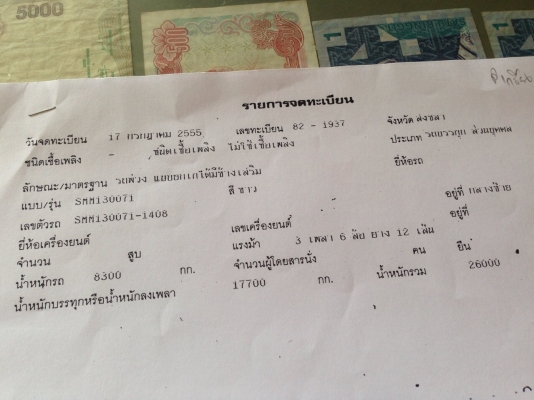 5000
500
1
1
รายการจดทะเบียน
วันจดทะเบียน 17 กรกฎาคม 2555 เลขทะเบียน 82 - 1937 จังหวัด สงขลา
ชนิดเชื้อเพลิง - ชนิดเชื้อเพลิง ไม่ใช้เชื้อเพลิง ประเภท รถบรรทุก ส่วนบุคคล
ลักษณะ/มาตรฐาน รถพ่วง แบบยกเทได้มีข้างเสริม ยี่ห้อรถ
แบบ/รุ่น SMM130071 สี ขาว
เลขตัวรถ SMM130071-1408 อยู่ที่ กลางซ้าย
ยี่ห้อเครื่องยนต์ เลขเครื่องยนต์ อยู่ที่
จำนวน สูบ แรงม้า 3 เพลา 6 ล้อ ยาง 12 เส้น
น้ำหนักรถ 8300 กก. จำนวนผู้โดยสารนั่ง คน ยืน
น้ำหนักบรรทุกหรือน้ำหนักลงเพลา 17700 กก. น้ำหนักรวม 26000